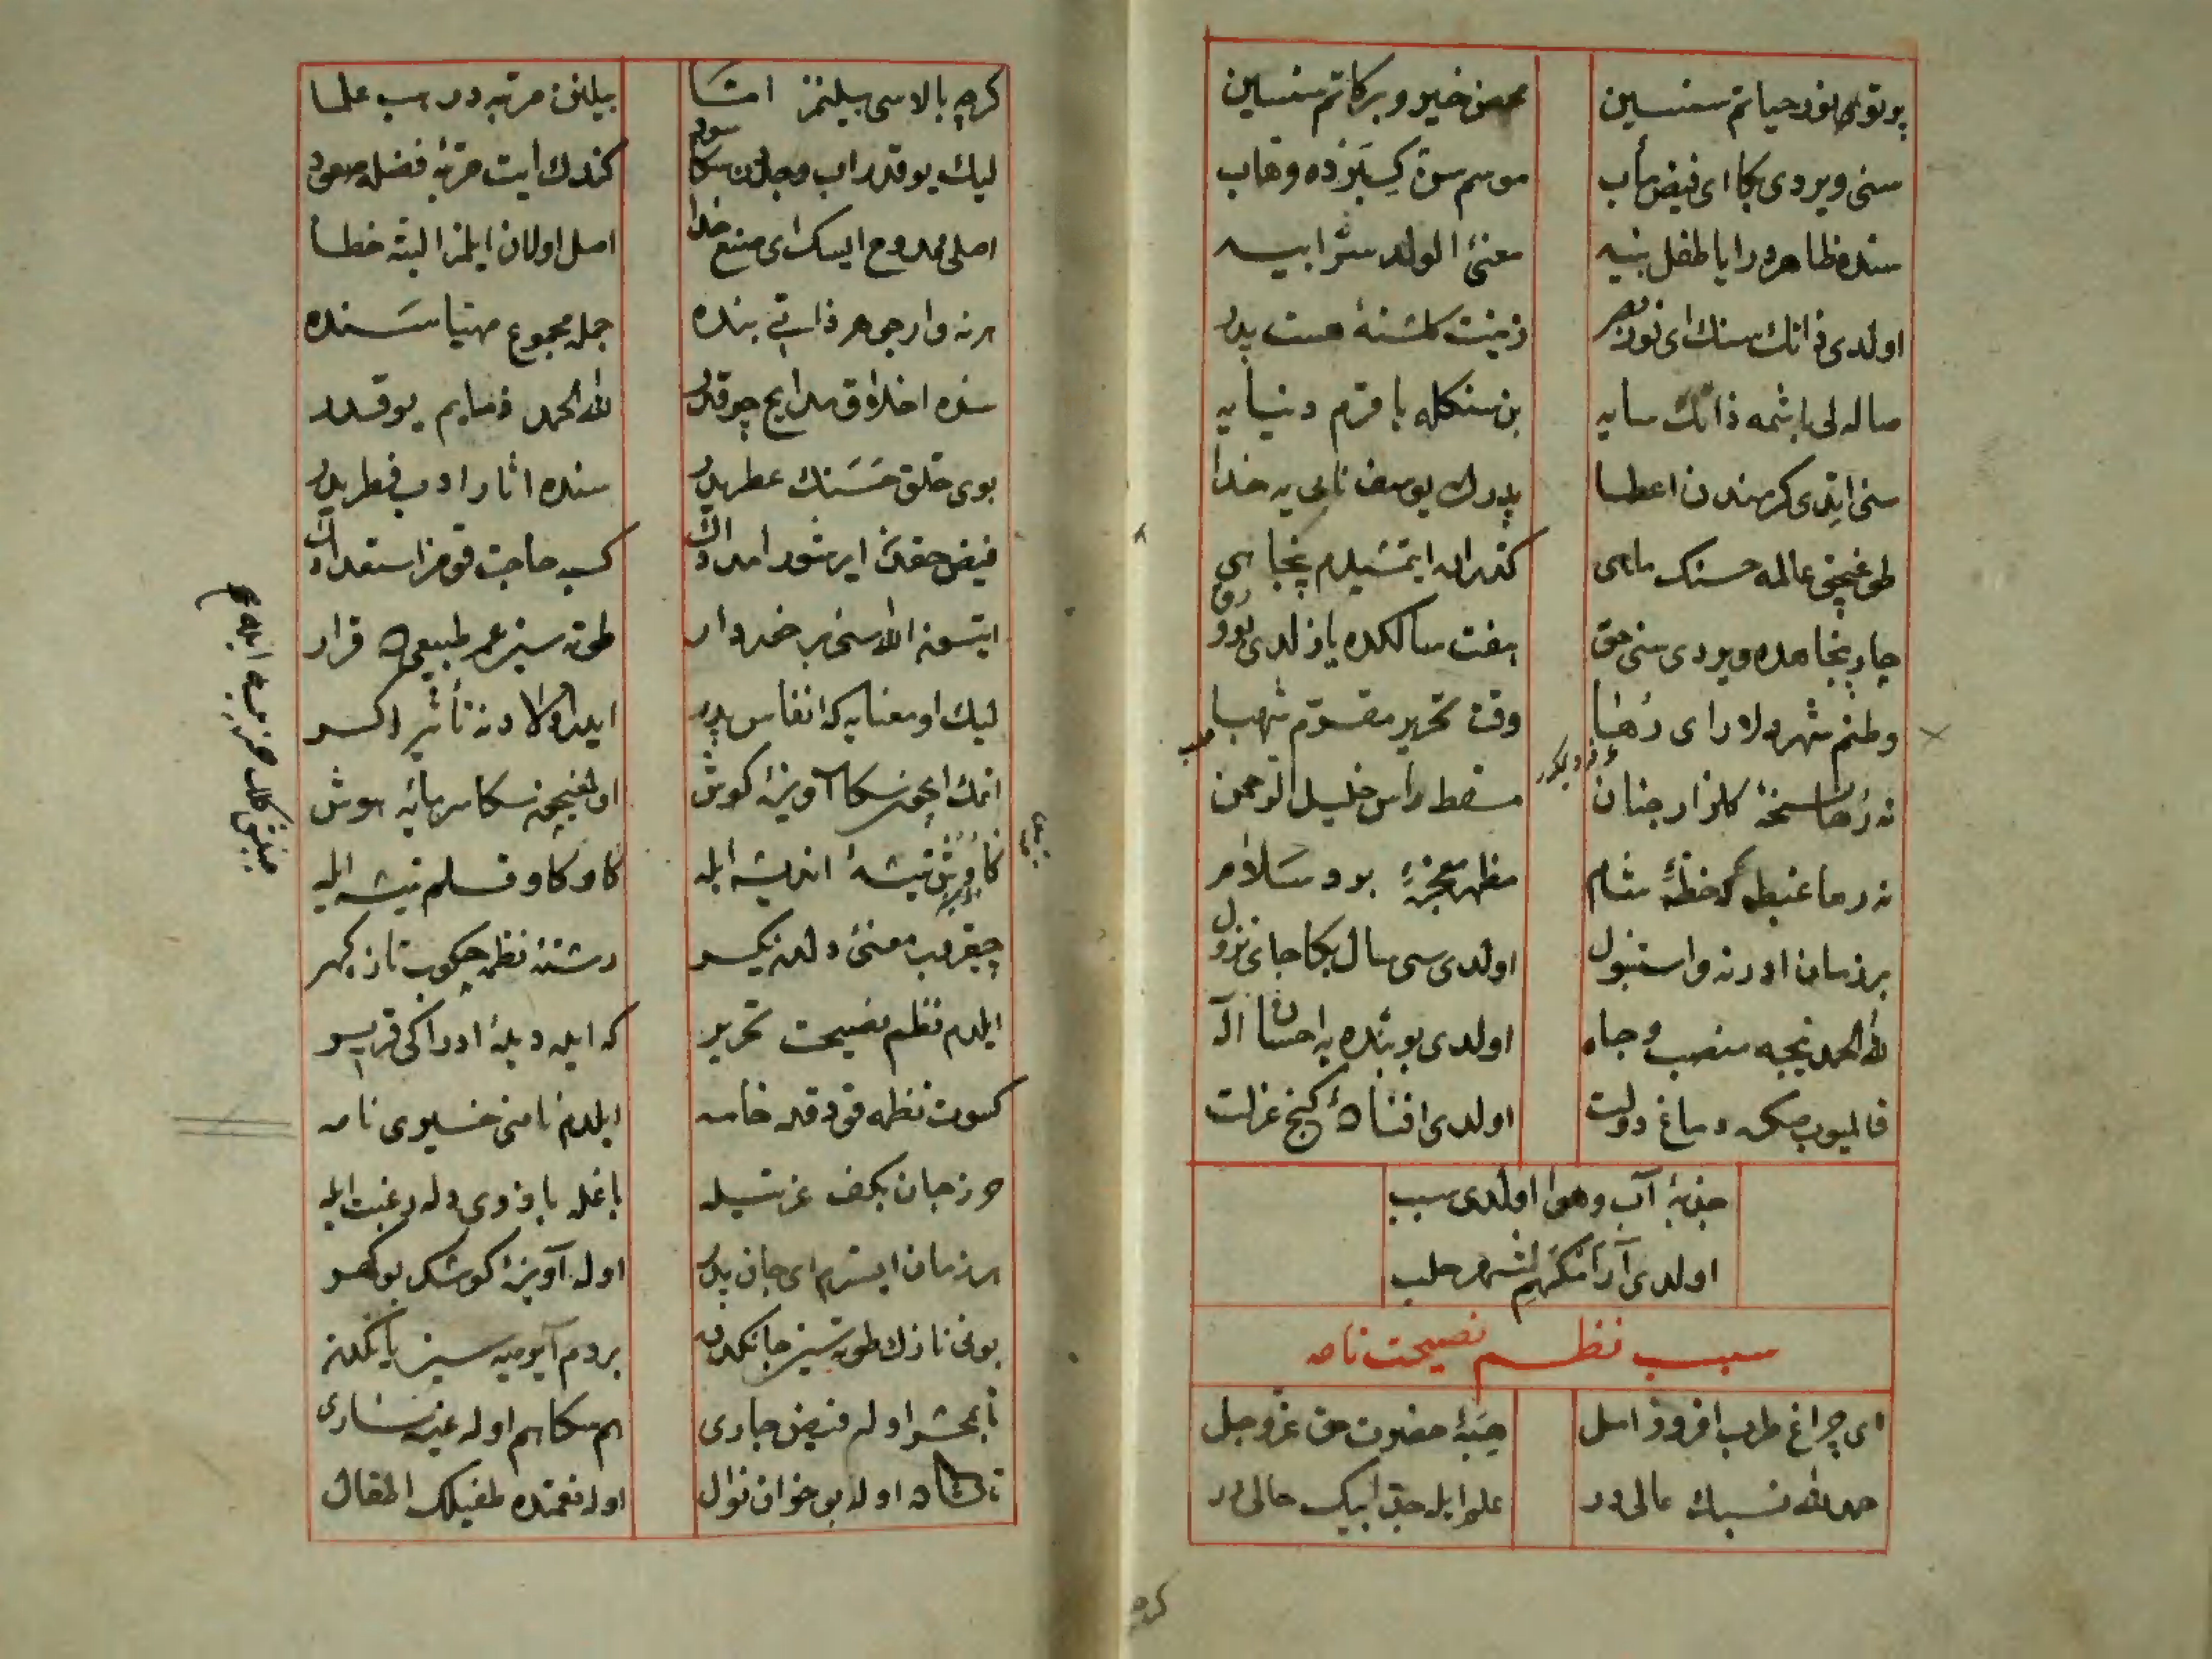 پرتو نور حیاتم سنسین محض خیر و برکاتم سنسین
سنی ویردی بکا ای فیض مأب موسم سن کبرده وهاب
سنده ظاهردر ایا طفل بنیه معنئ الولد سر ابیه
اولدی ذاتك سنك ای نور بصر زینت کلشنهٔ هست پدر
صاله لی باشمه ذاتك سایه بن سنکله باقرم دنیایه
سنی ایتدی کرمندن اعطا پدرك یوسف نابی یه خدا
طوغیجق عالمه حسنك ماهی کذران ایتمشیدم پنجاهی
چار پنجاهده ویردی سنی حق هفت سالکده یازلدی بو ورق
وطنم شهر دلارای رها وقت تحریر مقرم شهبا
نه رها نسخهٔ کلزار جنان مسقط رأس خلیل الرحمن
نه رها غبطه که خطهٔ شام مظهر معجزهٔ برد و سلام
بر زمان ادرنه و استنبول اولدی سی سال بکا جای نزول
لله الحمد نیجه منصب و جاه اولدی بو بنده یه احسان اله
قالمیوب صکره دماغ دولت اولدی افتاده کنج عزلت
جذبهٔ آب و هوا اولدی سبب
اولدی آرامکهم شهر حلب
سبب نظم نصیحت نامه
ای چراغ طرب افروز امل هبهٔ حضرت حق عز و جل
حمد لله نسبك عالی در علم ایله جد ابیك حالی در
کره
کرچه بالاسی بیلنمز امّا بیلنن مرتبه در هب علما
لیك یوقدر اب و جددن سکا سود کندك ایت مرتبهٔ فضله صعود
اصلی ممدوح ایسك ای منبع اصل اولان ایلمز البته خطا
هر نه وار جوهر ذاتی بنده جمله مجموع مهیا سنده
سنده اخلاق مدایح چوقدر لله الحمد ذمایم یوقدر
بوی خلق حسنك عطریدر سنده اثار ادب فطریدر
فیض حقدن ایرشور امدادك کسبه حاجت قومز استعدادك
ایتسون الله سنی برخوردار طوته سین عمر طبیعیده قرار
لیك او معنایه که انفاس پدر ایده اولادنه تأثیر اکثر
انك ایچون سکا آویزهٔ کوش اولمغیچون سکا سرمایه هوش
کاوش تیشهٔ اندیشه ایله کاو کاو قلم تیشه ایله
چیقروب معنئ دلدن یکسر رشتهٔ نظمه چکوب تازه کهر
ایلدم نظم نصیحت تحریر که ایده دیدهٔ ادراکی قریر
کسوت نظمه قودقده خامه ایلدم نامنی خیری نامه
حرز جان بکف عزتیله باغله بازوی دله رغبت ایله
هر زمان ایسترم ای جان پدر اوله آویزهٔ کوشك بو کهر
بونی نازك طوته سین جانکدن بر دم آیرمیه سین یانکدن
تا بمحشر اوله فیض جاری هم سکا هم اوله غیره ساری
تا کشاده اوله بو خوان نوال اوله نعمتده طفیلك اطفال